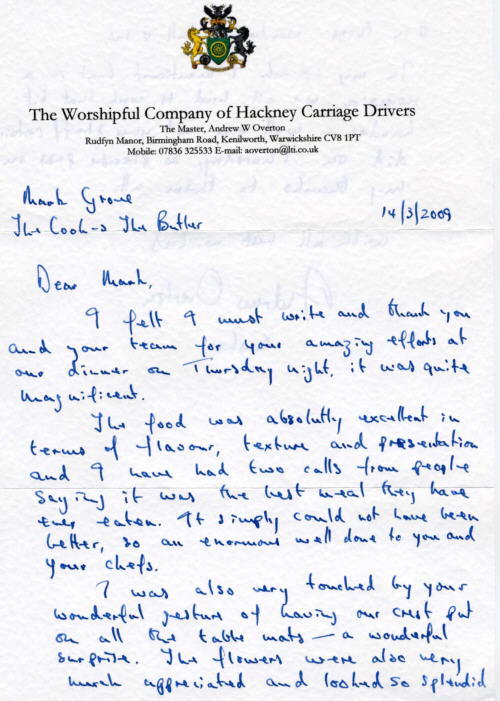 The Worshipful Company of Hackney Carriage Drivers
The Master, Andrew W Overton
Rudfyn Manor, Birmingham Road, Kenilworth, Warwickshire CV8 1PT
Mobile: 07836 325533 E-mail: aoverton@lti.co.uk
Mark Grove
The Cook & The Butler
14/3/2009
Dear Mark,
I felt I must write and thank you
and your team for your amazing efforts at
our dinner on Thursday night, it was quite
magnificent.
The food was absolutly excellent in
terms of flavour, texture and presentation
and I have had two calls from people
saying it was the best meal they have
ever eaten. It simply could not have been
better, so an enormous well done to you and
your chefs.
I was also very touched by your
wonderful gesture of having our crest put
on all the table mats — a wonderful
surprise. The flowers were also very
much appreciated and looked so splendid